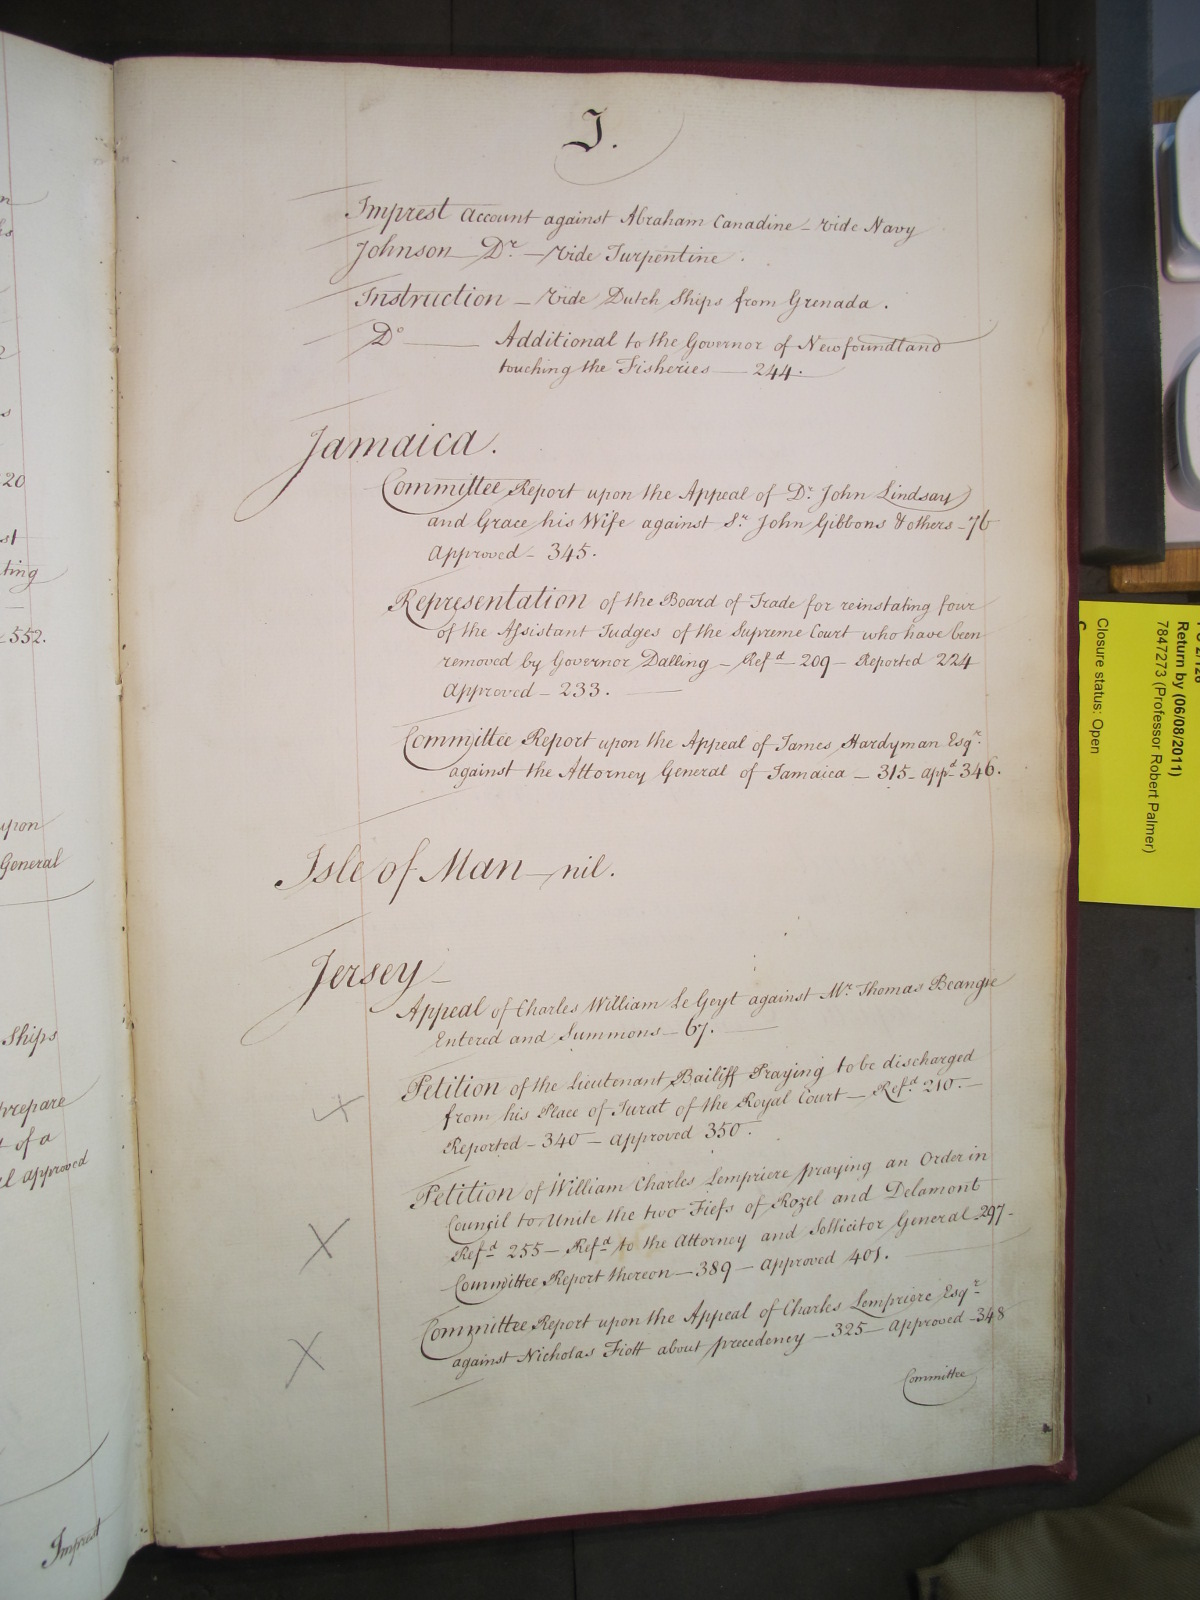 I.
Imprest Account against Abraham Canadine – vide Navy
Johnson Dr. – Vide Turpentine.
Instruction – Vide Dutch Ships from Grenada.
Do. —— Additional to the Governor of Newfoundland
touching the Fisheries — 244.
Jamaica.
Committee Report upon the Appeal of Dr. John Lindsay
and Grace his Wife against Sr. John Gibbons & others – 76
Approved – 345.
Representation of the Board of Trade for reinstating four
of the Assistant Judges of the Supreme Court who have been
removed by Governor Dalling – Refd. – 209 – Reported 224
Approved – 233. ——
Committee Report upon the Appeal of James Hardyman Esqr.
against the Attorney General of Jamaica – 315 – appd. 346.
Isle of Man – nil.
Jersey –
Appeal of Charles William Le Geyt against Mr. Thomas Beangie
Entered and Summons – 67. ——
Petition of the Lieutenant Bailiff Praying to be discharged
from his Place of Jurat of the Royal Court – Refd. 210. –
Reported – 340 – approved 350.
Petition of William Charles Lempriere praying an Order in
Council to Unite the two Fiefs of Rozel and Delamont
Refd. 255 – Refd. to the Attorney and Sollicitor General – 297 –
Committee Report thereon – 389 – approved 401.
Committee Report upon the Appeal of Charles Lempriere Esqr.
against Nicholas Fiott about precedency – 325 – approved – 348
Committee
20
st
ting
552.
upon
General
Ships
prepare
of a
approved
Imprest
Return by (06/08/2011)
7847273 (Professor Robert Palmer)
Closure status: Open